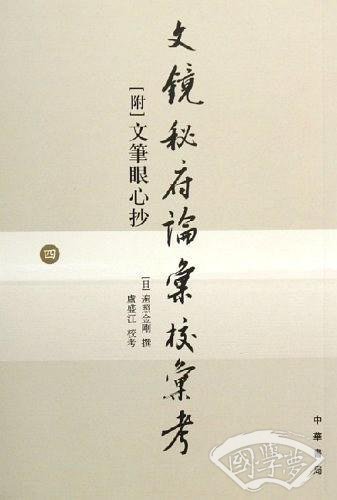 文镜秘府論彙校彙考
[附]文筆眼心抄
四
[日]遍照金剛 撰
盧盛江 校考
中華書局
國學夢